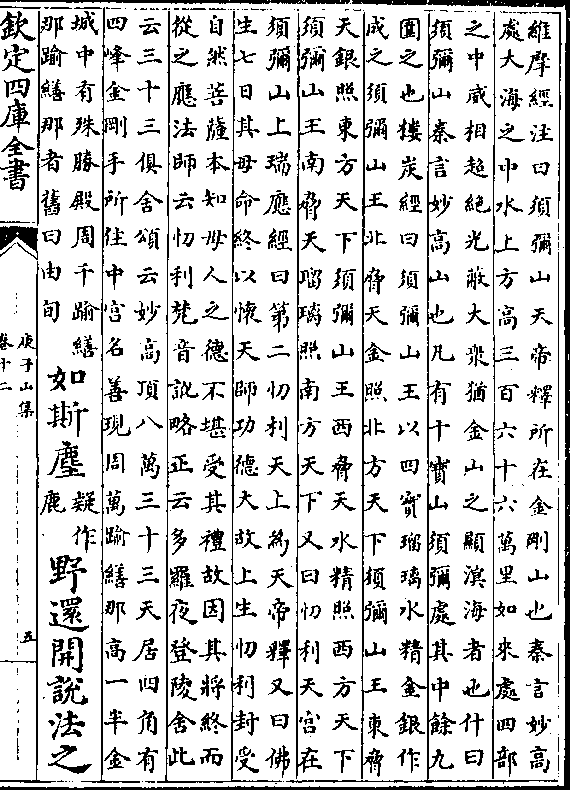 維摩經注曰須彌山天帝釋所在金剛山也秦言妙高
處大海之中水上方高三百六十六萬里如來處四部
之中威相超絕光蔽大衆猶金山之顯溟海者也什曰
須彌山秦言妙高山也凡有十寶山須彌處其中餘九
圍之也樓炭經曰須彌山王以四寶瑠璃水精金銀作
成之須彌山王北脅天金照北方天下須彌山王東脅
天銀照東方天下須彌山王西脅天水精照西方天下
須彌山王南脅天瑠璃照南方天下又曰忉利天宮在
須彌山上瑞應經曰第二忉利天上為天帝釋又曰佛
生七日其母命終以懷天師功德大故上生忉利封受
自然菩薩本知母人之德不堪受其禮故因其將終而
從之應法師云忉利梵音訛略正云多羅夜登陵舍此
云三十三俱舍頌云妙高頂八萬三十三天居四角有
四峰金剛手所住中宮名善現周萬踰繕那高一半金
城中有殊勝殿周千踰繕
那踰繕那者舊曰由旬
如斯塵
疑作
鹿
野還開說法之
欽定四庫全書
庾子山集
卷十二
五